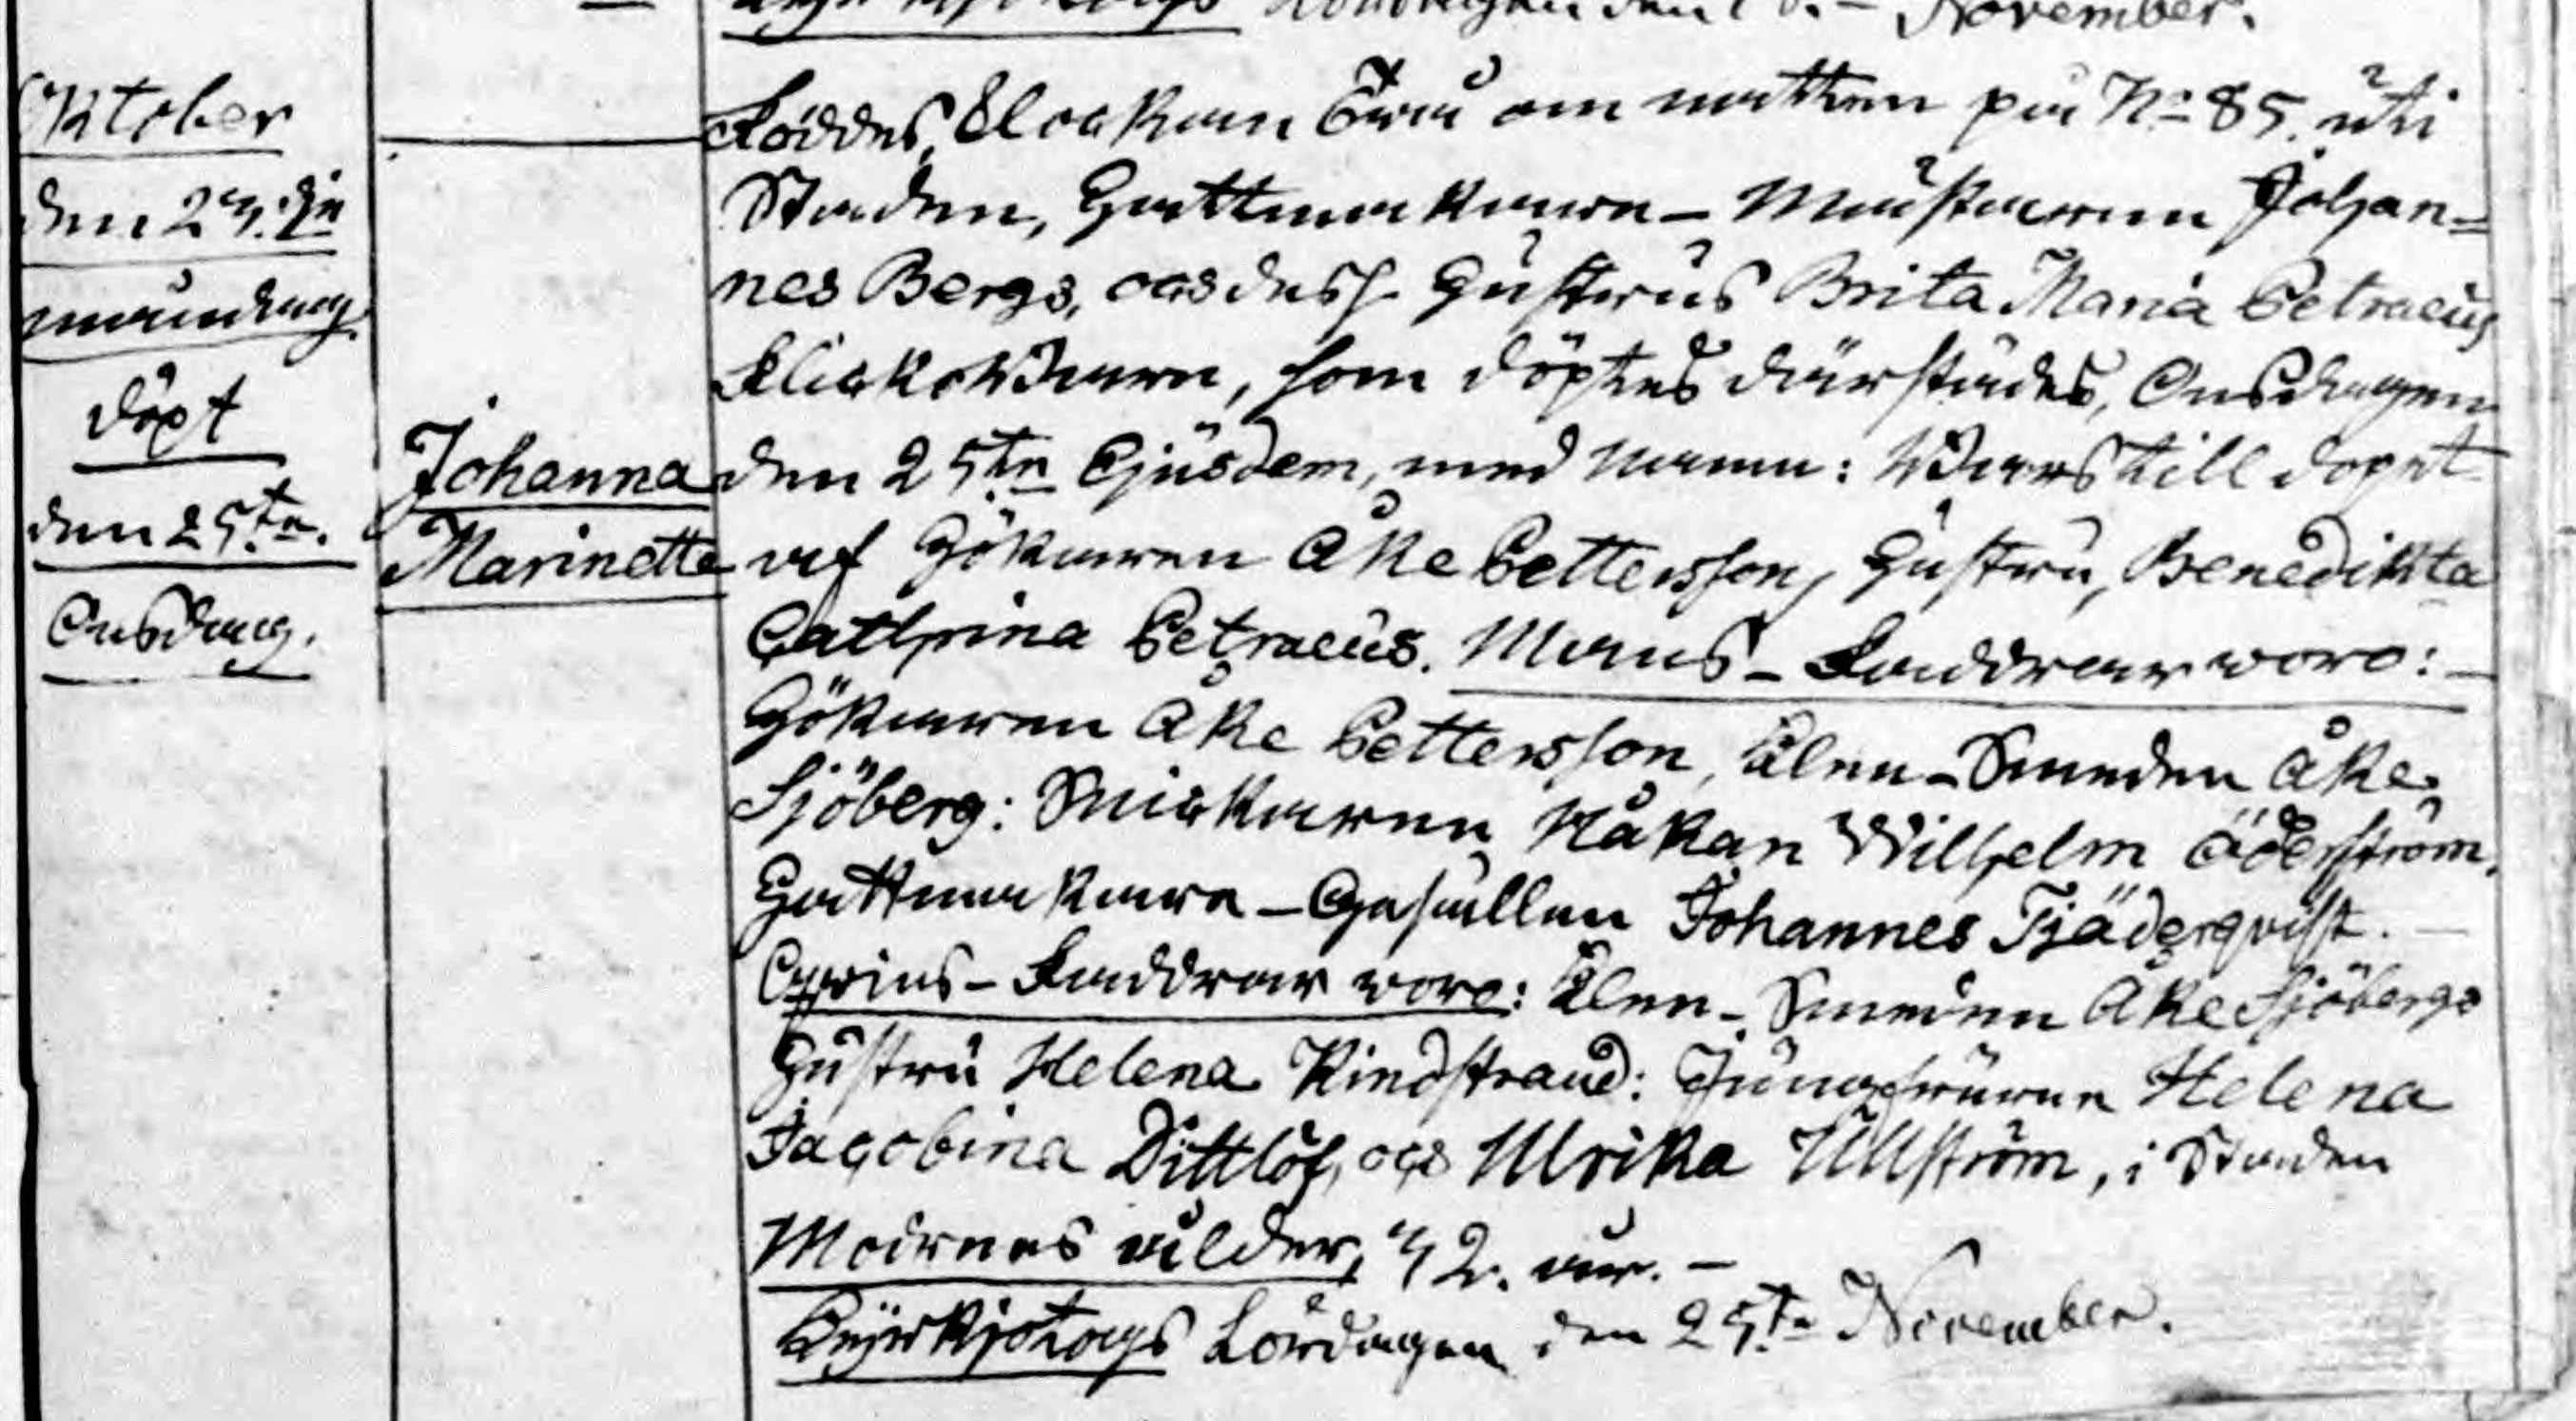 November.
Oktober
den 23.dje
måndag
döpt
den 25te.
Onsdag.
Johanna
Marinette
Föddes, Klockan Trú om natten på No 85. uti
Staden, Hattmakare-Mästaren Johan-
nes Bergs, och dess Hustrus Brita Maria Petraeus
Flickobarn, som döptes därstädes, Onsdagen
den 25te Ejusdem, med namn: Bars till dopet
af Fiskaren Åke Pettersson, Hustru, Benedikta
Cathrina Petraeus. Mans-Faddrar voro:
Åke Pettersson, Klen-Smeden Åke
Sjöberg: Snickaren Håkan Wilhelm Åderström.
Hattmakare-Gesällen Johannes Tjäderqvist.
Qvins-Faddrar voro: Klen-Smeden Åke Sjöbergs
Hustru Helena Rindstrand: Jungfrurna Helena
Jacobina Dittlöf, och Ulrika Ullström, i Staden
Modrens ålder, 42. år. -
Kyrkjotogs Lördagen den 25te November.